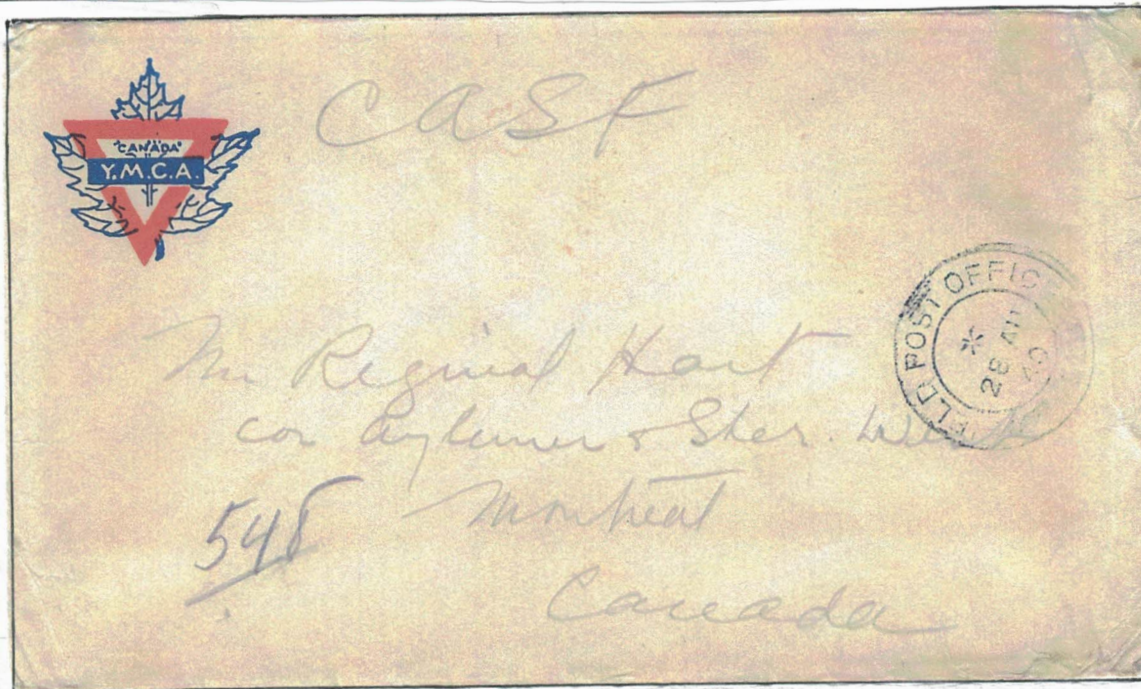 CASF
CANADA
Y.M.C.A.
FIELD POST OFFICE
28 AU
40
Mr Reginal Hart
cor Aylmer & Sher. West
Montreal
548
Canada